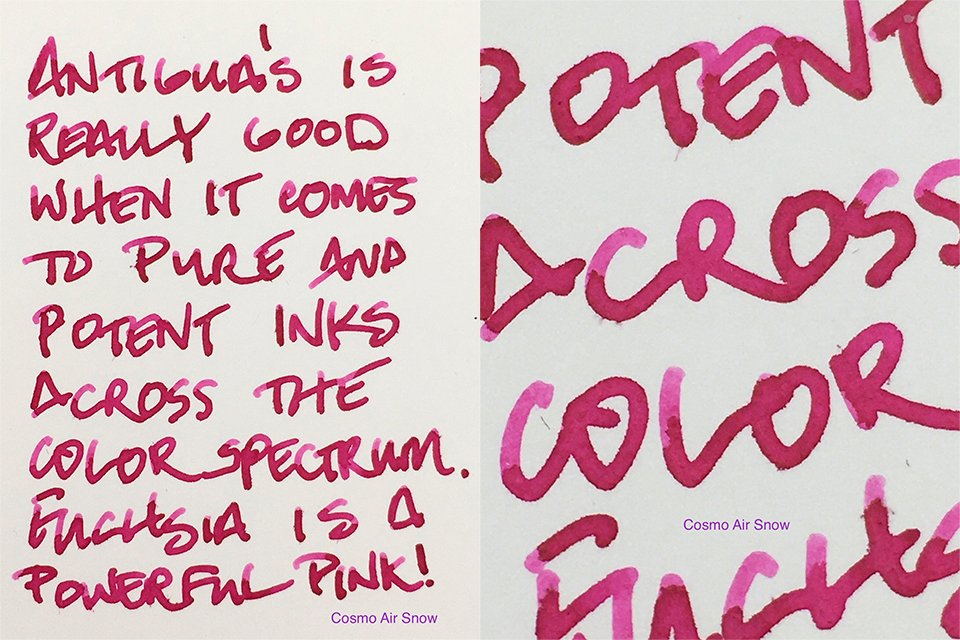 ANTIGUA'S IS
REALLY GOOD
WHEN IT COMES
TO PURE AND
POTENT INKS
ACROSS THE
COLOR SPECTRUM.
FUCHSIA IS A
POWERFUL PINK!
Cosmo Air Snow
POTENT
ACROSS
COLOR
Cosmo Air Snow
FUCHS